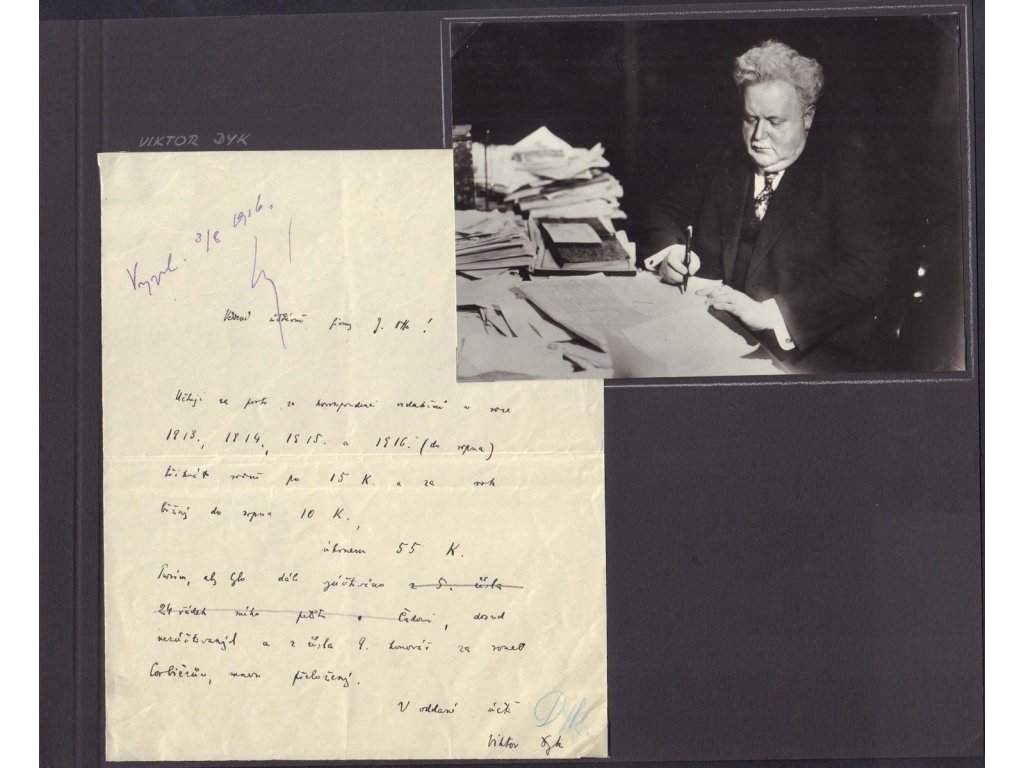 VIKTOR DYK
Vyřl. 3/8 1916.
účtárně firmy J. Otto!
Účtuji za porto za korrespondenci redakční v roce
1913., 1914., 1915. a 1916. (do srpna)
třikrát ročně po 15 K. a za rok
běžný do srpna 10 K.,
úhrnem 55 K.
Prosím, aby bylo dále zúčtováno z 5. čísla
24 řádek mého, dosud
nezúčtovaných a z čísla 9. honorář za sonet
Corbièrův, mnou přeložený.
V oddané úctě
Viktor Dyk
Dyk.